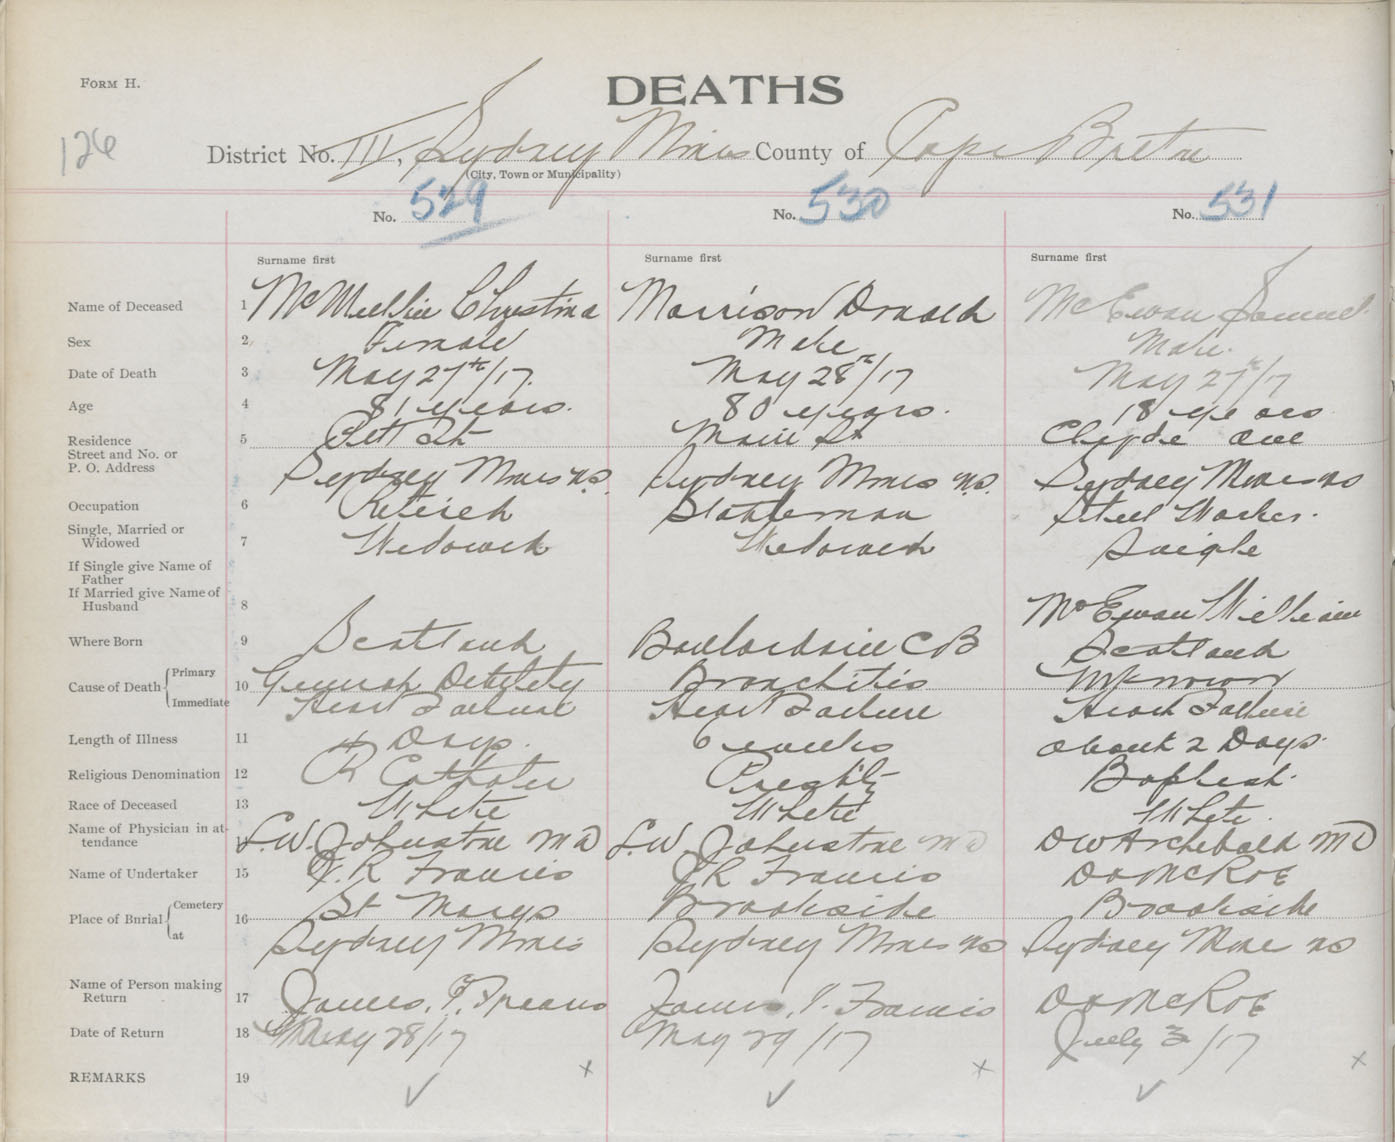 FORM H.
DEATHS
126
District No. III, Sydney Mines County of Cape Breton
(City, Town or Municipality)
No. 529 No. 530 No. 531
Surname first Surname first Surname first
Name of Deceased 1 Christina Morrison Donald McEwan Samuel
Sex 2 Female Male Male
Date of Death 3 May 27th/17. May 28th/17 May 27th/17
Age 4 81 years. 80 years. 18 years
Residence 5 Pitt St Main St Clyde Ave
Street and No. or
P. O. Address Sydney Mines N.S. Sydney Mines N.S. Sydney Mines NS
Occupation 6 Retired Stableman Steel Worker.
Single, Married or
Widowed 7 Widowed Widowed Single
If Single give Name of
Father
If Married give Name of
Husband 8 McEwan William
Where Born 9 Scotland Boulardarie C B Scotland
Cause of Death { Primary 10 General Debility Bronchitis Unknown
Immediate Heart Failure Heart Failure Heart Failure
Length of Illness 11 Days. 6 weeks about 2 Days.
Religious Denomination 12 R Catholic Presbty Baptist.
Race of Deceased 13 White White White.
Name of Physician in at-
tendance 14 L.W. Johnstone MD L.W. Johnstone MD DW Archibald MD
Name of Undertaker 15 J. R Francis J R Francis DA McRAE
Place of Burial { Cemetery 16 St Marys Brookside Brookside
at Sydney Mines Sydney Mines NS Sydney Mines NS
Name of Person making
Return 17 James Francis DA McRAE
Date of Return 18 May 28/17 May 29/17 July 3/17
REMARKS 19